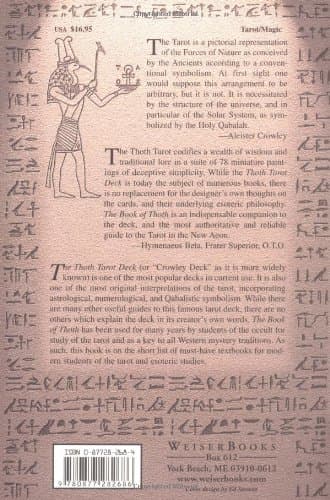 USA $16.95
Tarot/Magic
The Tarot is a pictorial representation
of the Forces of Nature as conceived by
the Ancients according to a conven-
tional symbolism. At first sight one
would suppose this arrangement to be
arbitrary, but it is not. It is necessitated
by the structure of the universe, and in
particular of the Solar System, as sym-
bolized by the Holy Qabalah.
—Aleister Crowley
The Thoth Tarot codifies a wealth of wisdom and
traditional lore in a suite of 78 miniature paint-
ings of deceptive simplicity. While the Thoth Tarot
Deck is today the subject of numerous books, there
is no replacement for the designer's own thoughts on
the cards, and their underlying esoteric philosophy.
The Book of Thoth is an indispensable companion to
the deck, and the most authoritative and reliable
guide to the Tarot in the New Aeon.
—Hymenaeus Beta, Frater Superior, O.T.O.
The Thoth Tarot Deck (or "Crowley Deck" as it is more widely
known) is one of the most popular decks in current use. It is also
one of the most original interpretations of the tarot, incorporating
astrological, numerological, and Qabalistic symbolism. While there
are many other useful guides to this famous tarot deck, there are no
others which explain the deck in its creator's own words. The Book
of Thoth has been used for many years by students of the occult for
study of the tarot and as a key to all Western mystery traditions. As
such, this book is on the short list of must-have textbooks for mod-
ern students of the tarot and esoteric studies.
ISBN 0-87728-268-4
9 780877 282686
WEISERBOOKS
Box 612
York Beach, ME 03910-0612
www.weiserbooks.com
Cover design by Ed Stevens